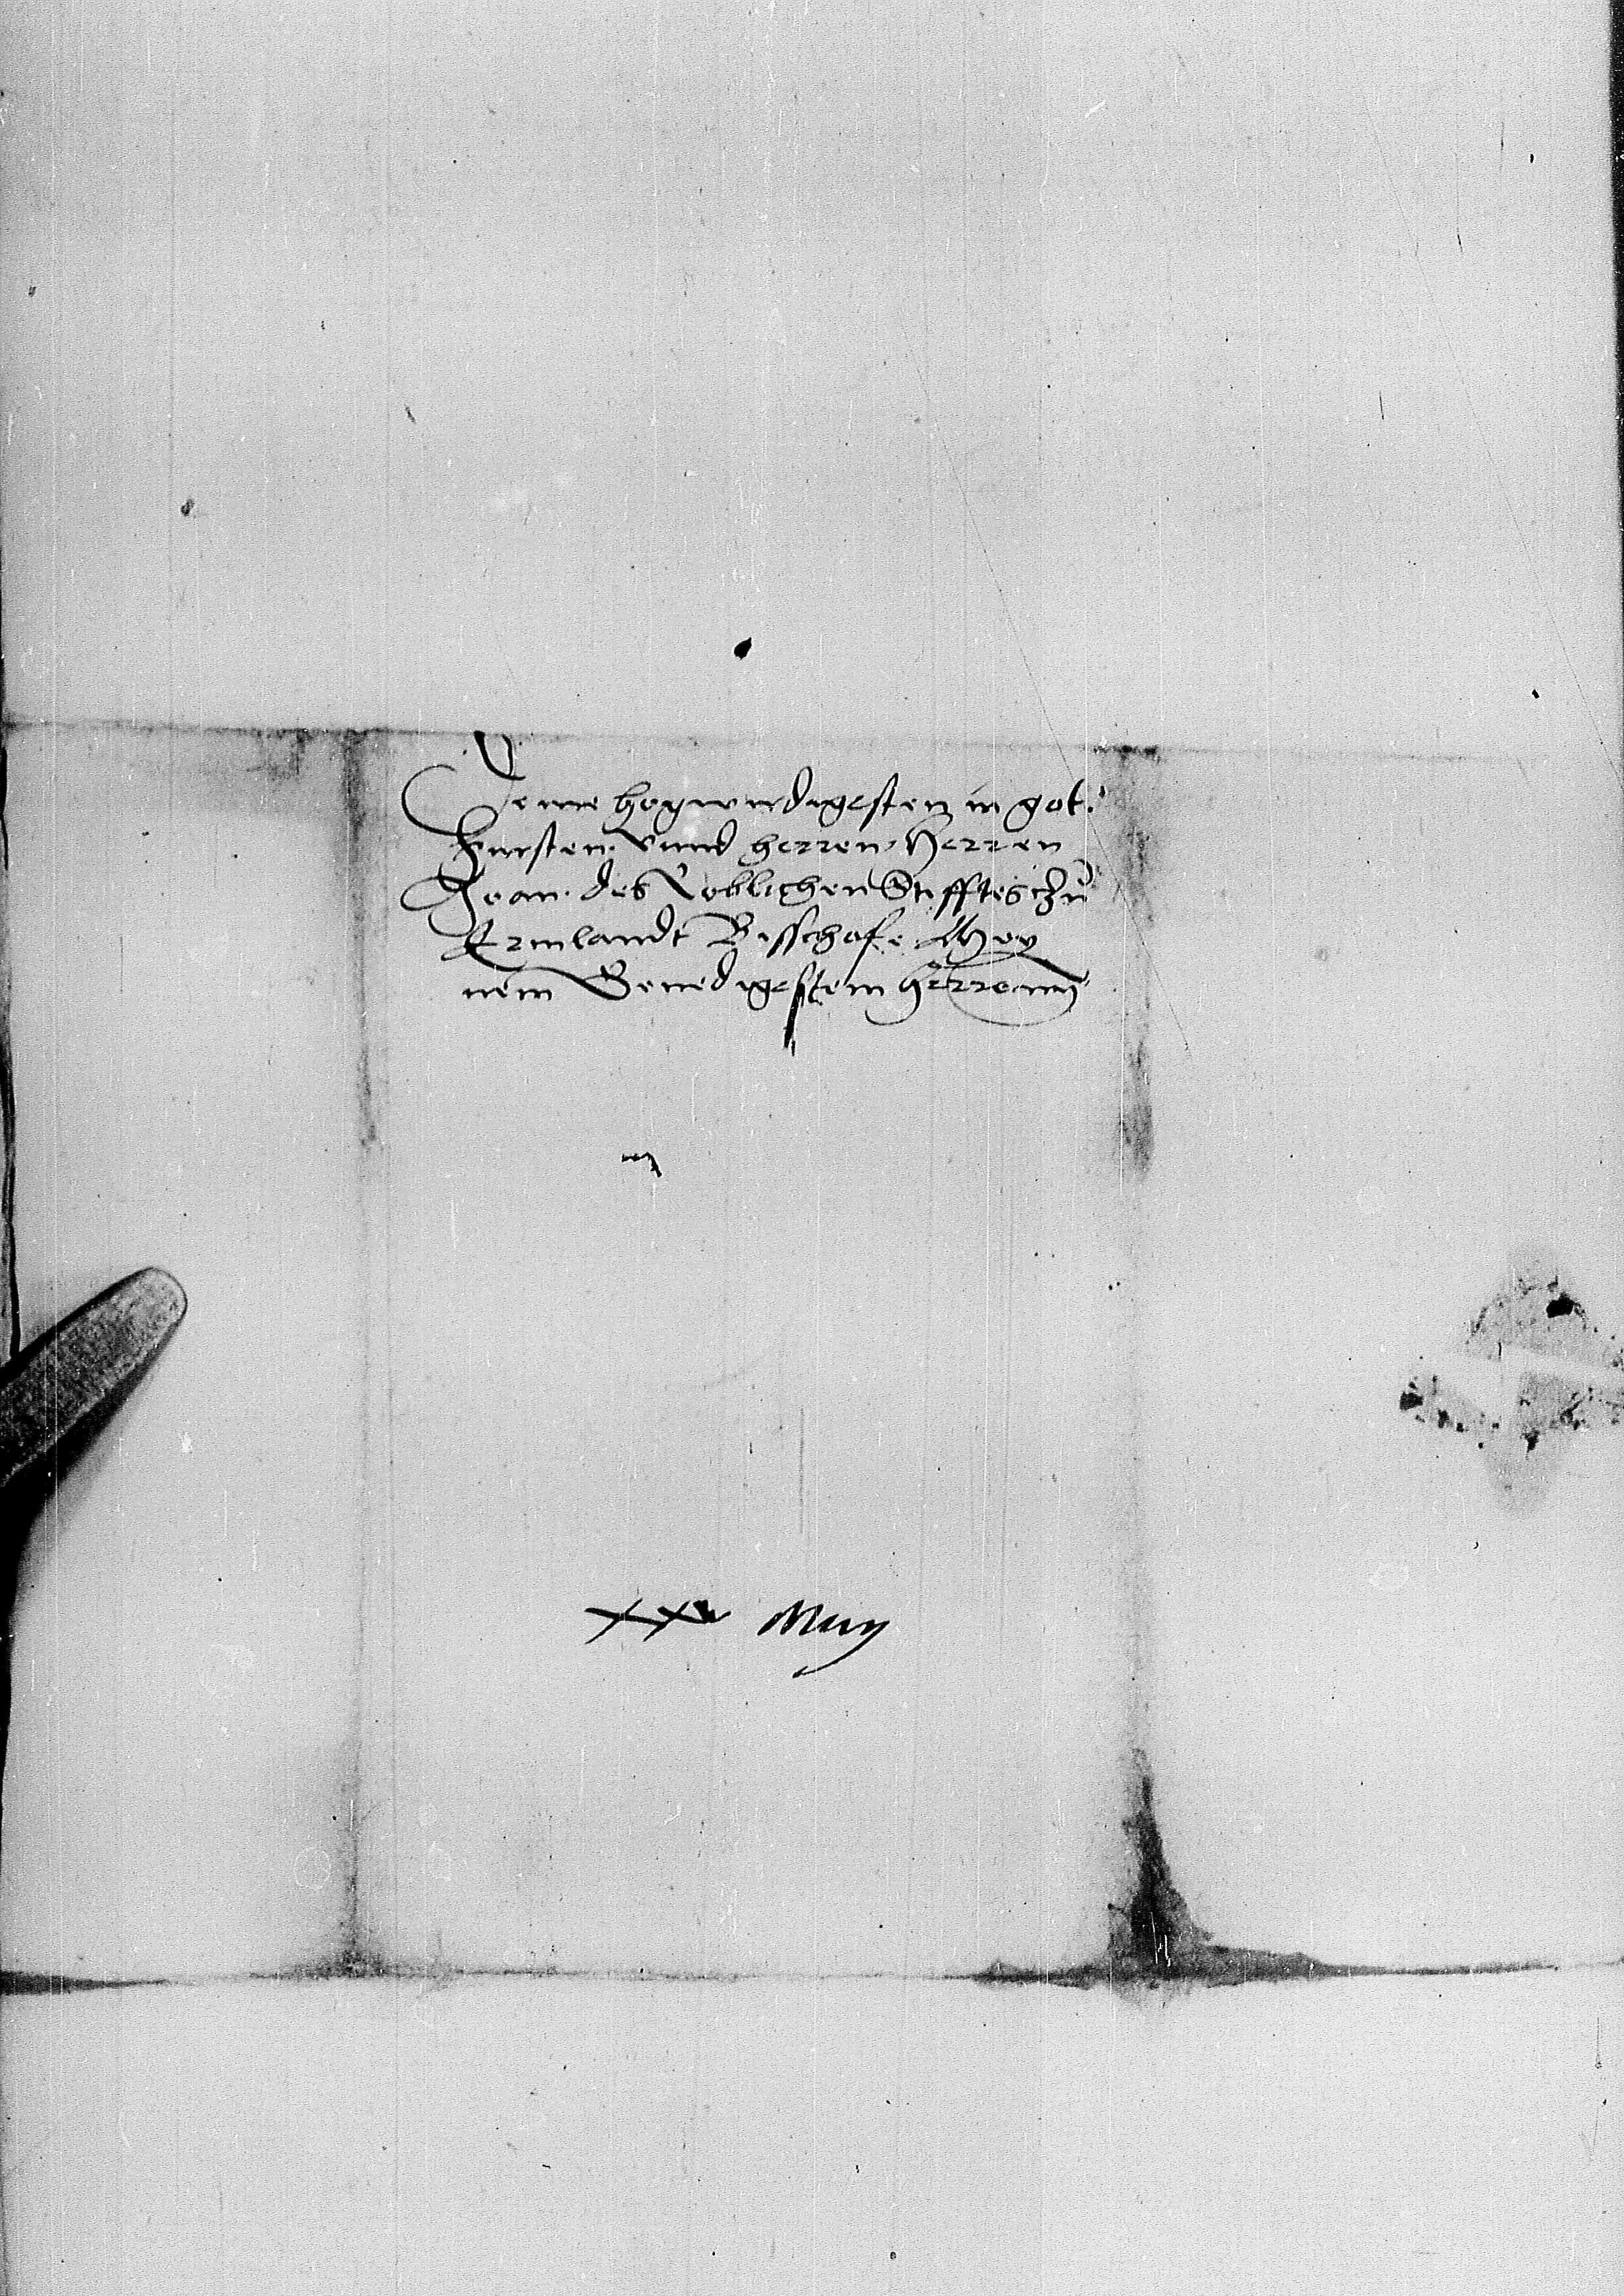 Deme hogwirdigesten in got
Fursten vnnd herren Herren
Joan. des Loblichen Stifftes czu
Ermlandt Bisschofe Mey
nem Genedigestem herrenn
xxv May